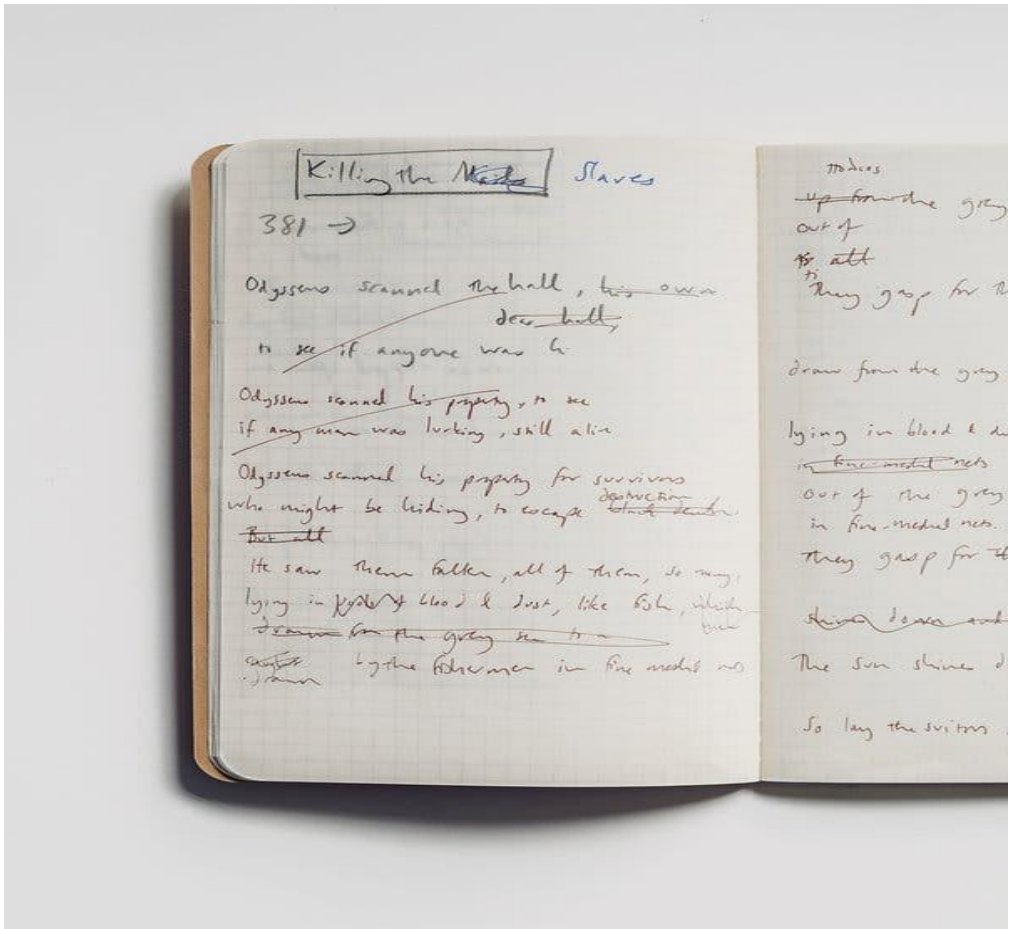 Killing the Maids Slaves
381 →
Odysseus scanned the hall, his own
dear hall,
to see if anyone was h
Odysseus scanned his property, to see
if any man was lurking, still alive
Odysseus scanned his property for survivors
destruction
who might be hiding, to escape black death.
But all
He saw them fallen, all of them, so many,
lying in pools of blood & dust, like fish, which
drawn from the grey sea
caught by the fishermen in fine-meshed
drawn
up from the grey
out of
all
to
They gasp for
drawn from the grey
lying in blood & du
in fine-meshed nets
out of the grey
in fine-meshed nets.
They gasp for
shines down and
The sun shines d
So lay the suitors